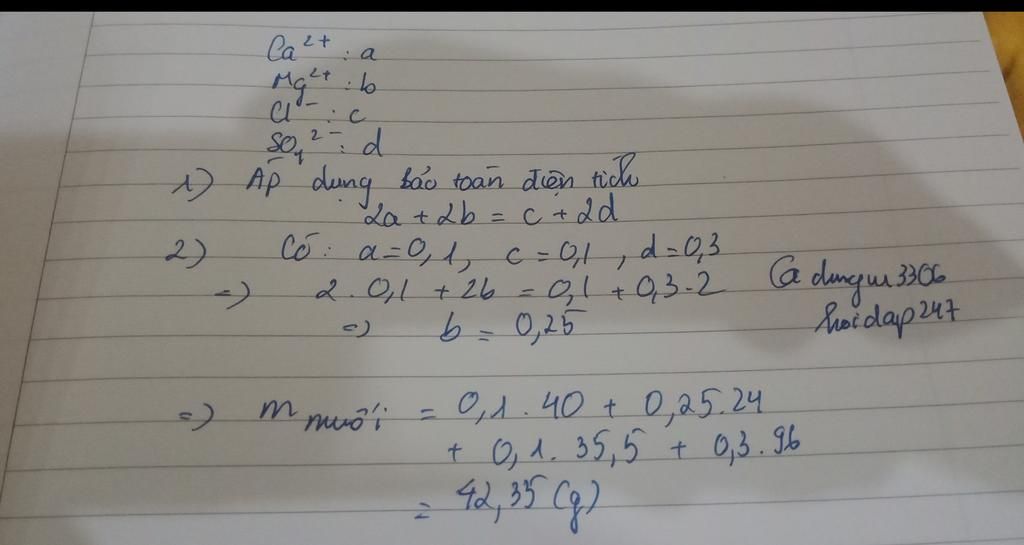 Ca²⁺ : a
Mg²⁺ : b
Cl⁻ : c
SO₄²⁻ : d
1) Áp dụng bảo toàn điện tích
2a + 2b = c + 2d
2) Có : a = 0,1, c = 0,1 , d = 0,3
=) 2 . 0,1 + 2b = 0,1 + 0,3 . 2
=) b = 0,25
@ dungur3306
hoidap247
=) m muối = 0,1 . 40 + 0,25 . 24
+ 0,1 . 35,5 + 0,3 . 96
= 42,35 (g)